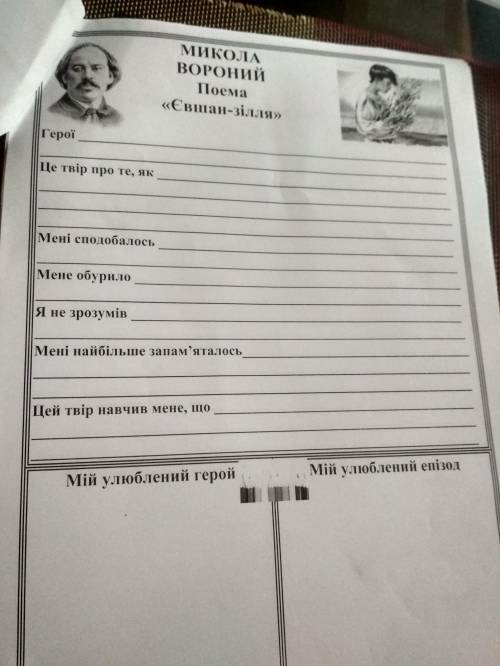 МИКОЛА
ВОРОНИЙ
Поема
«Євшан-зілля»
Герої
Це твір про те, як
Мені сподобалось
Мене обурило
Я не зрозумів
Мені найбільше запам’яталось
Цей твір навчив мене, що
Мій улюблений герой
Мій улюблений епізод